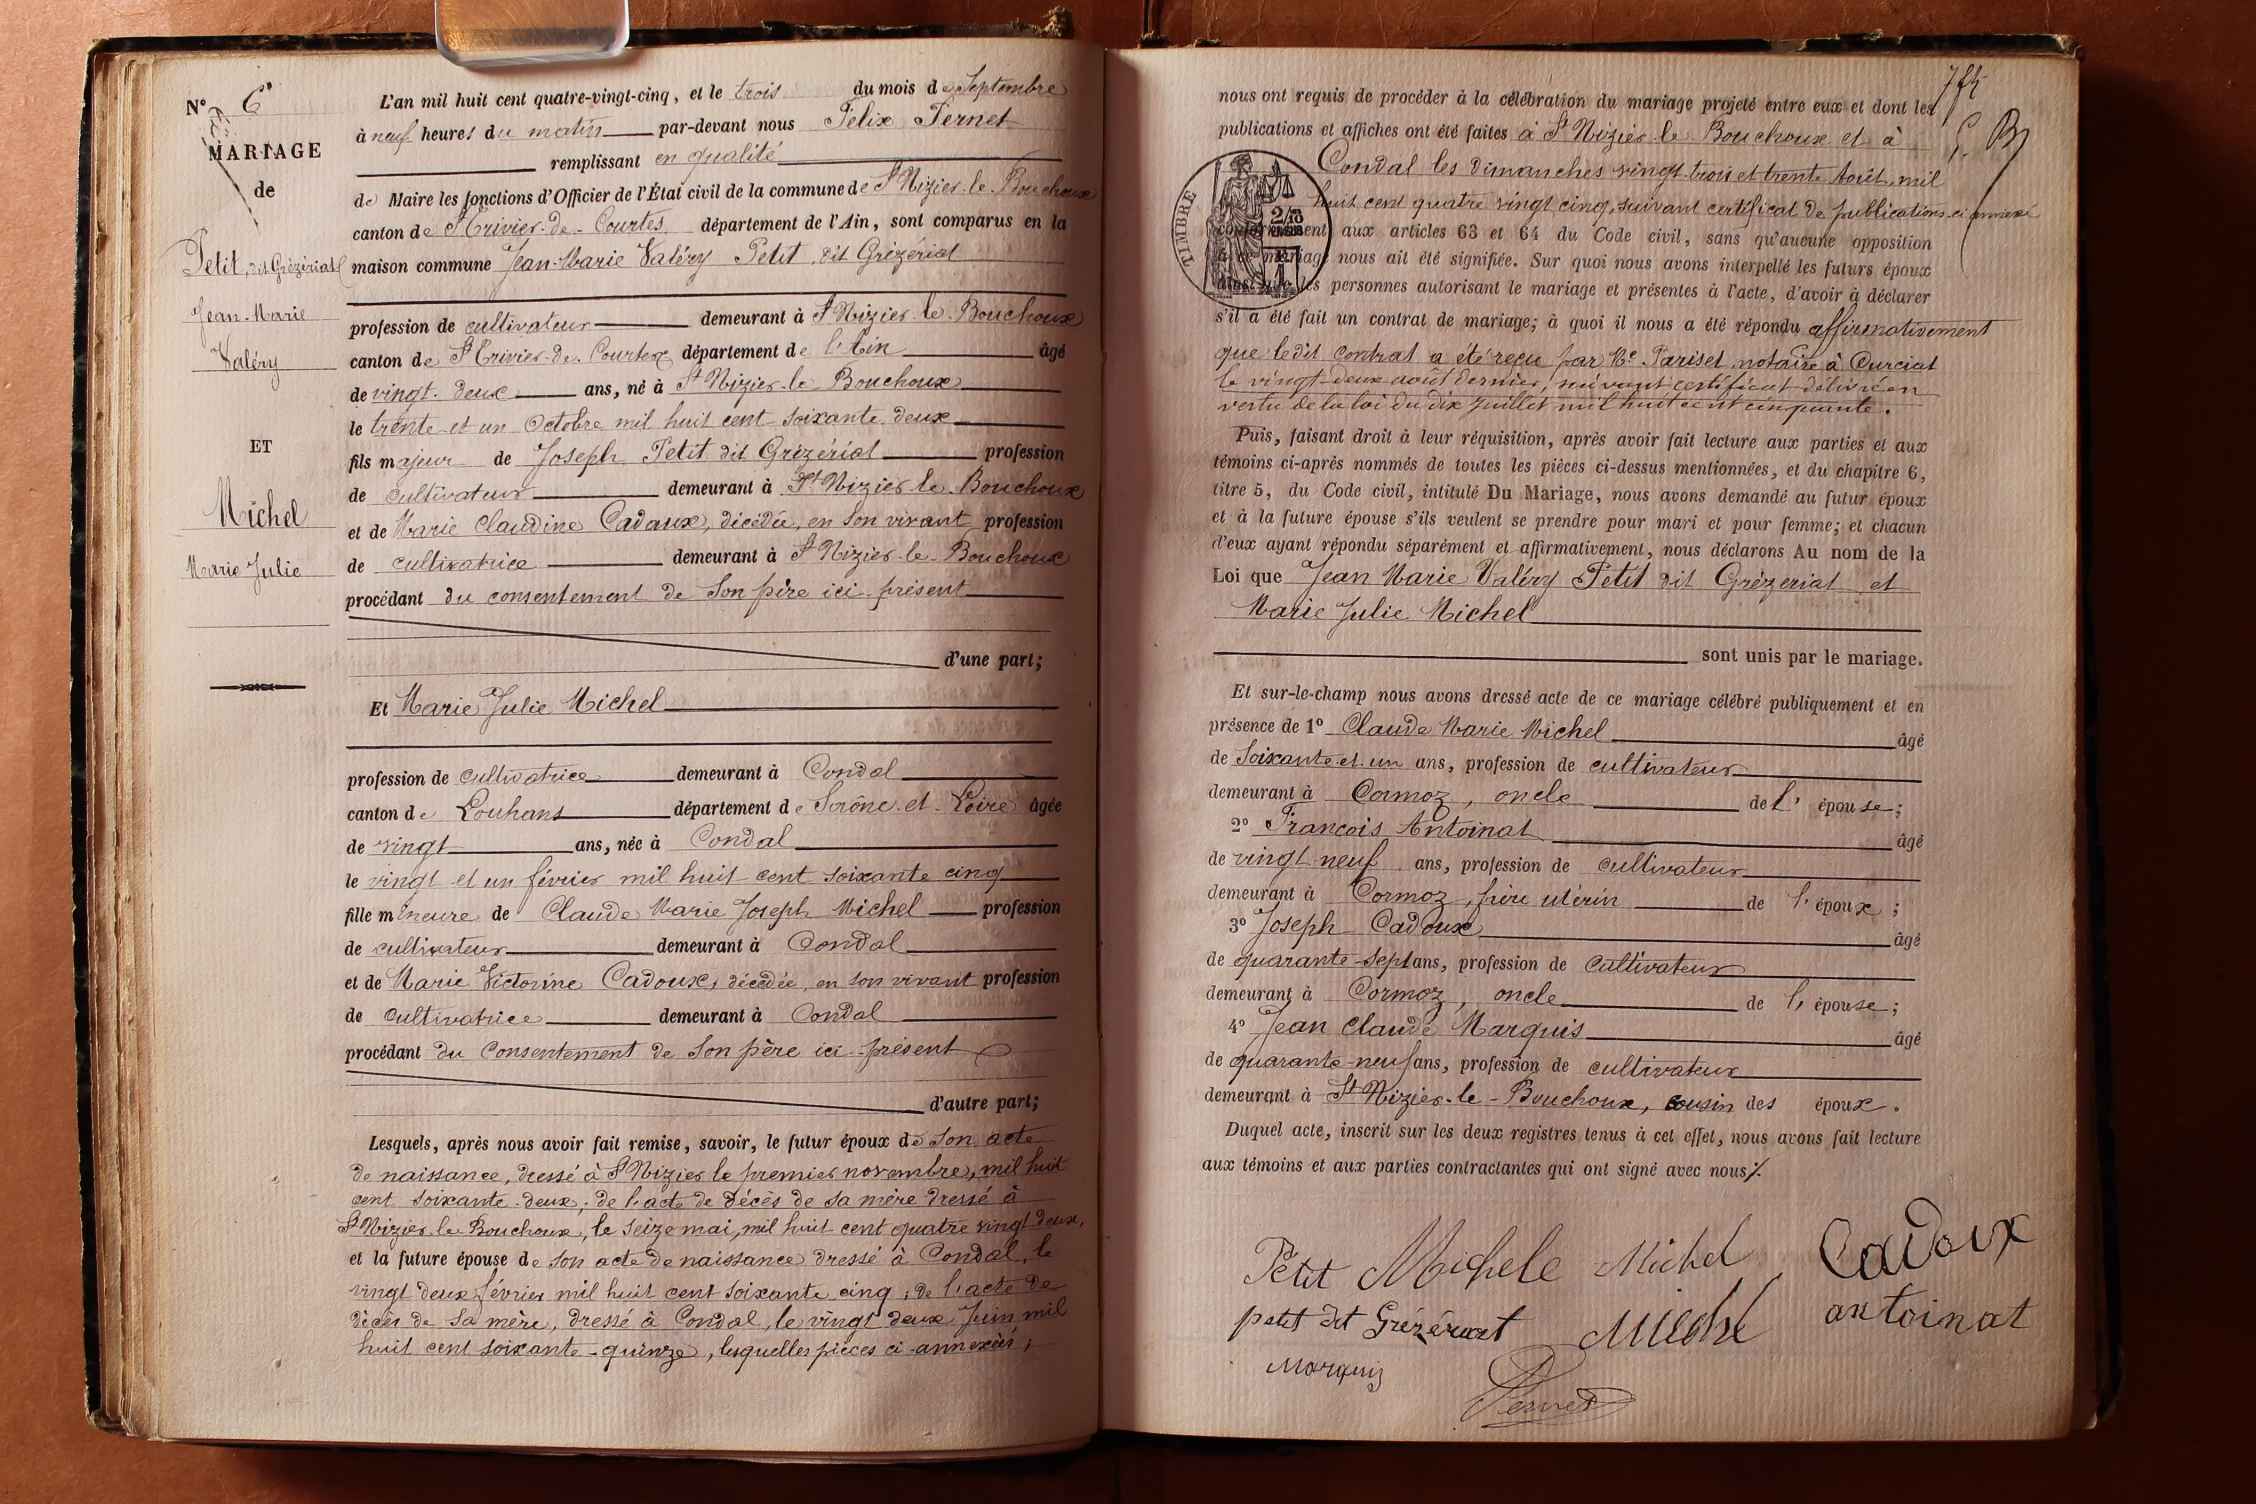 N° 6
MARIAGE
de
Petit, dit Grézériat
Jean-Marie
Valéry
ET
Michel
Marie Julie
L'an mil huit cent quatre-vingt-cinq, et le trois du mois de Septembre
à neuf heures du matin par-devant nous Félix Pernet
remplissant en qualité
de Maire les fonctions d'Officier de l'État civil de la commune de St Nizier-le-Bouchoux
canton de St Trivier-de-Courtes, département de l'Ain, sont comparus en la
maison commune Jean-Marie Valéry Petit, dit Grézériat
profession de cultivateur demeurant à St Nizier-le-Bouchoux
canton de St Trivier-de-Courtes département de l'Ain âgé
de vingt-deux ans, né à St Nizier-le-Bouchoux
le trente et un Octobre mil huit cent soixante deux
fils majeur de Joseph Petit dit Grézériat profession
de cultivateur demeurant à St Nizier-le-Bouchoux
et de Marie Claudine Cadoux, décédée, en son vivant profession
de cultivatrice demeurant à St Nizier-le-Bouchoux
procédant du consentement de son père ici présent
d'une part;
Et Marie Julie Michel
profession de cultivatrice demeurant à Condal
canton de Louhans département de Saône-et-Loire âgée
de vingt ans, née à Condal
le vingt et un février mil huit cent soixante cinq
fille mineure de Claude Marie Joseph Michel profession
de cultivateur demeurant à Condal
et de Marie Victorine Cadoux, décédée, en son vivant profession
de cultivatrice demeurant à Condal
procédant du consentement de son père ici présent
d'autre part;
Lesquels, après nous avoir fait remise, savoir, le futur époux de son acte
de naissance, dressé à St Nizier le premier novembre, mil huit
cent soixante-deux; de l'acte de décès de sa mère dressé à
St Nizier-le-Bouchoux, le seize mai, mil huit cent quatre vingt deux,
et la future épouse de son acte de naissance dressé à Condal, le
vingt deux février mil huit cent soixante cinq; de l'acte de
décès de sa mère, dressé à Condal, le vingt deux Juin mil
huit cent soixante-quinze, lesquelles pièces ci-annexées;
nous ont requis de procéder à la célébration du mariage projeté entre eux et dont les
publications et affiches ont été faites à St Nizier-le-Bouchoux et à
Condal les dimanches vingt-trois et trente Août, mil
huit cent quatre vingt cinq, suivant certificat de publications ci annexé
conformément aux articles 63 et 64 du Code civil, sans qu'aucune opposition
à ce mariage nous ait été signifiée. Sur quoi nous avons interpellé les futurs époux
ainsi que les personnes autorisant le mariage et présentes à l'acte, d'avoir à déclarer
s'il a été fait un contrat de mariage; à quoi il nous a été répondu affirmativement
que ledit contrat a été reçu par Me Pariset notaire à Curciat
le vingt-deux août dernier, suivant certificat délivré en
vertu de la loi du dix juillet mil huit cent cinquante.
TIMBRE
Puis, faisant droit à leur réquisition, après avoir fait lecture aux parties et aux
témoins ci-après nommés de toutes les pièces ci-dessus mentionnées, et du chapitre 6,
titre 5, du Code civil, intitulé Du Mariage, nous avons demandé au futur époux
et à la future épouse s'ils veulent se prendre pour mari et pour femme; et chacun
d'eux ayant répondu séparément et affirmativement, nous déclarons Au nom de la
Loi que Jean Marie Valéry Petit dit Grézeriat et
Marie Julie Michel
sont unis par le mariage.
Et sur-le-champ nous avons dressé acte de ce mariage célébré publiquement et en
présence de 1° Claude Marie Michel âgé
de soixante-et-un ans, profession de cultivateur
demeurant à Cormoz, oncle de l'épouse;
2° François Antoinat âgé
de vingt-neuf ans, profession de cultivateur
demeurant à Cormoz, frère utérin de l'époux;
3° Joseph Cadoux âgé
de quarante-sept ans, profession de cultivateur
demeurant à Cormoz, oncle de l'épouse;
4° Jean Claude Marquis âgé
de quarante-neuf ans, profession de cultivateur
demeurant à St Nizier-le-Bouchoux, cousin des époux.
Duquel acte, inscrit sur les deux registres tenus à cet effet, nous avons fait lecture
aux témoins et aux parties contractantes qui ont signé avec nous
Petit Michele Michel Cadoux
petit dit Grézériat Michel antoinat
Marquis
Pernet